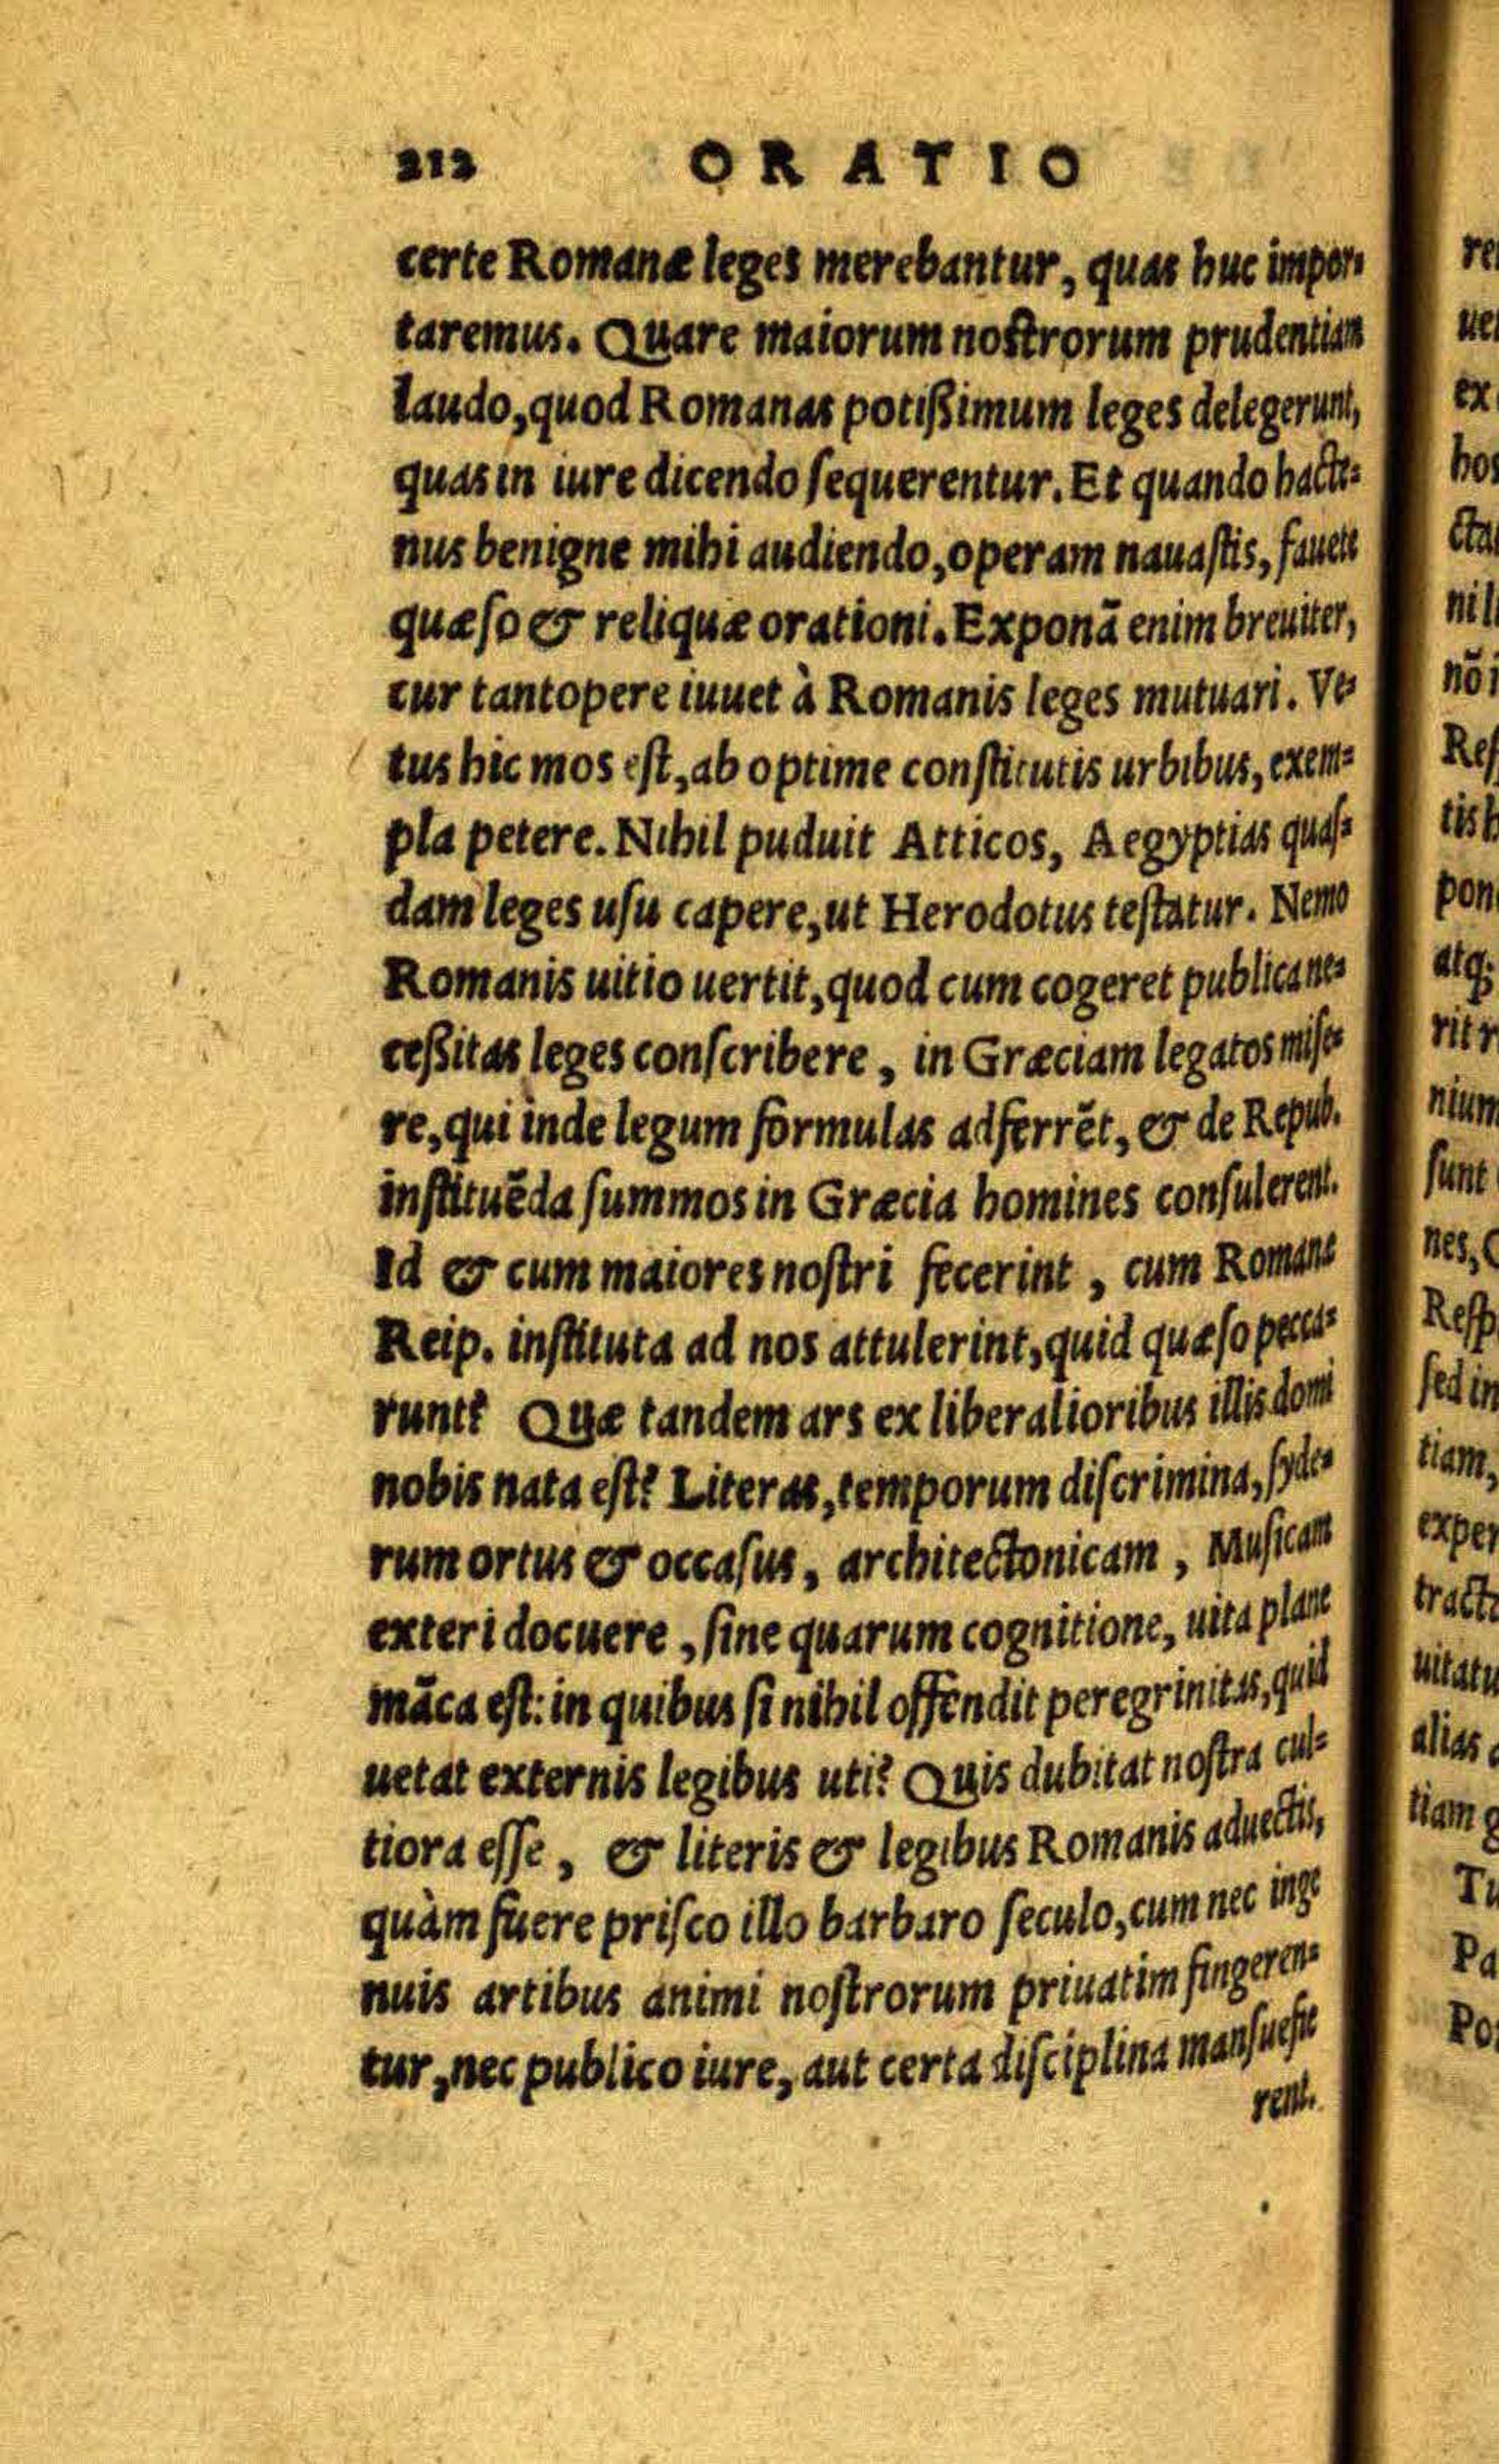 212 ORATIO
certe Romanæ leges merebantur, quas huc impor-
taremus. Quare maiorum nostrorum prudentiam
laudo, quod Romanas potißimum leges delegerunt,
quas in iure dicendo ſequerentur. Et quando hacte-
nus benigne mihi audiendo, operam nauaſtis, fauete
quæſo & reliquæ orationi. Exponā enim breuiter,
cur tantopere iuuet à Romanis leges mutuari. Ve-
tus hic mos eſt, ab optime conſtitutis urbibus, exem-
pla petere. Nihil puduit Atticos, Aegyptias quaſ-
dam leges uſu capere, ut Herodotus teſtatur. Nemo
Romanis uitio uertit, quod cum cogeret publica ne-
ceßitas leges conſcribere, in Græciam legatos miſe-
re, qui inde legum formulas adferrēt, & de Repub.
inſtituēda ſummos in Græcia homines conſulerent.
Id & cum maiores noſtri fecerint, cum Romanæ
Reip. inſtituta ad nos attulerint, quid quæſo pecca-
runt? Quæ tandem ars ex liberalioribus illis domi
nobis nata eſt? Literas, temporum diſcrimina, ſyde-
rum ortus & occaſus, architectonicam, Muſicam
exteri docuere, ſine quarum cognitione, uita plane
māca eſt: in quibus ſi nihil offendit peregrinitas, quid
uetat externis legibus uti? Quis dubitat noſtra cul-
tiora eſſe, & literis & legibus Romanis aduectis,
quàm fuere priſco illo barbaro ſeculo, cum nec inge
nuis artibus animi noſtrorum priuatim fingeren-
tur, nec publico iure, aut certa diſciplina manſuefie
rent.
re
ue
ex
hos
cta
nil
nō i
Reſ
tis h
pon
atq;
rit r
nium
ſunt
nes,
Reſp
ſed in
tiam,
exper
tract
uitatu
alias
tiam
Tu
Pa
Po